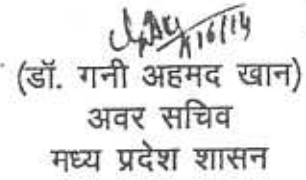 (डॉ. गनी अहमद खान)
अवर सचिव
मध्य प्रदेश शासन